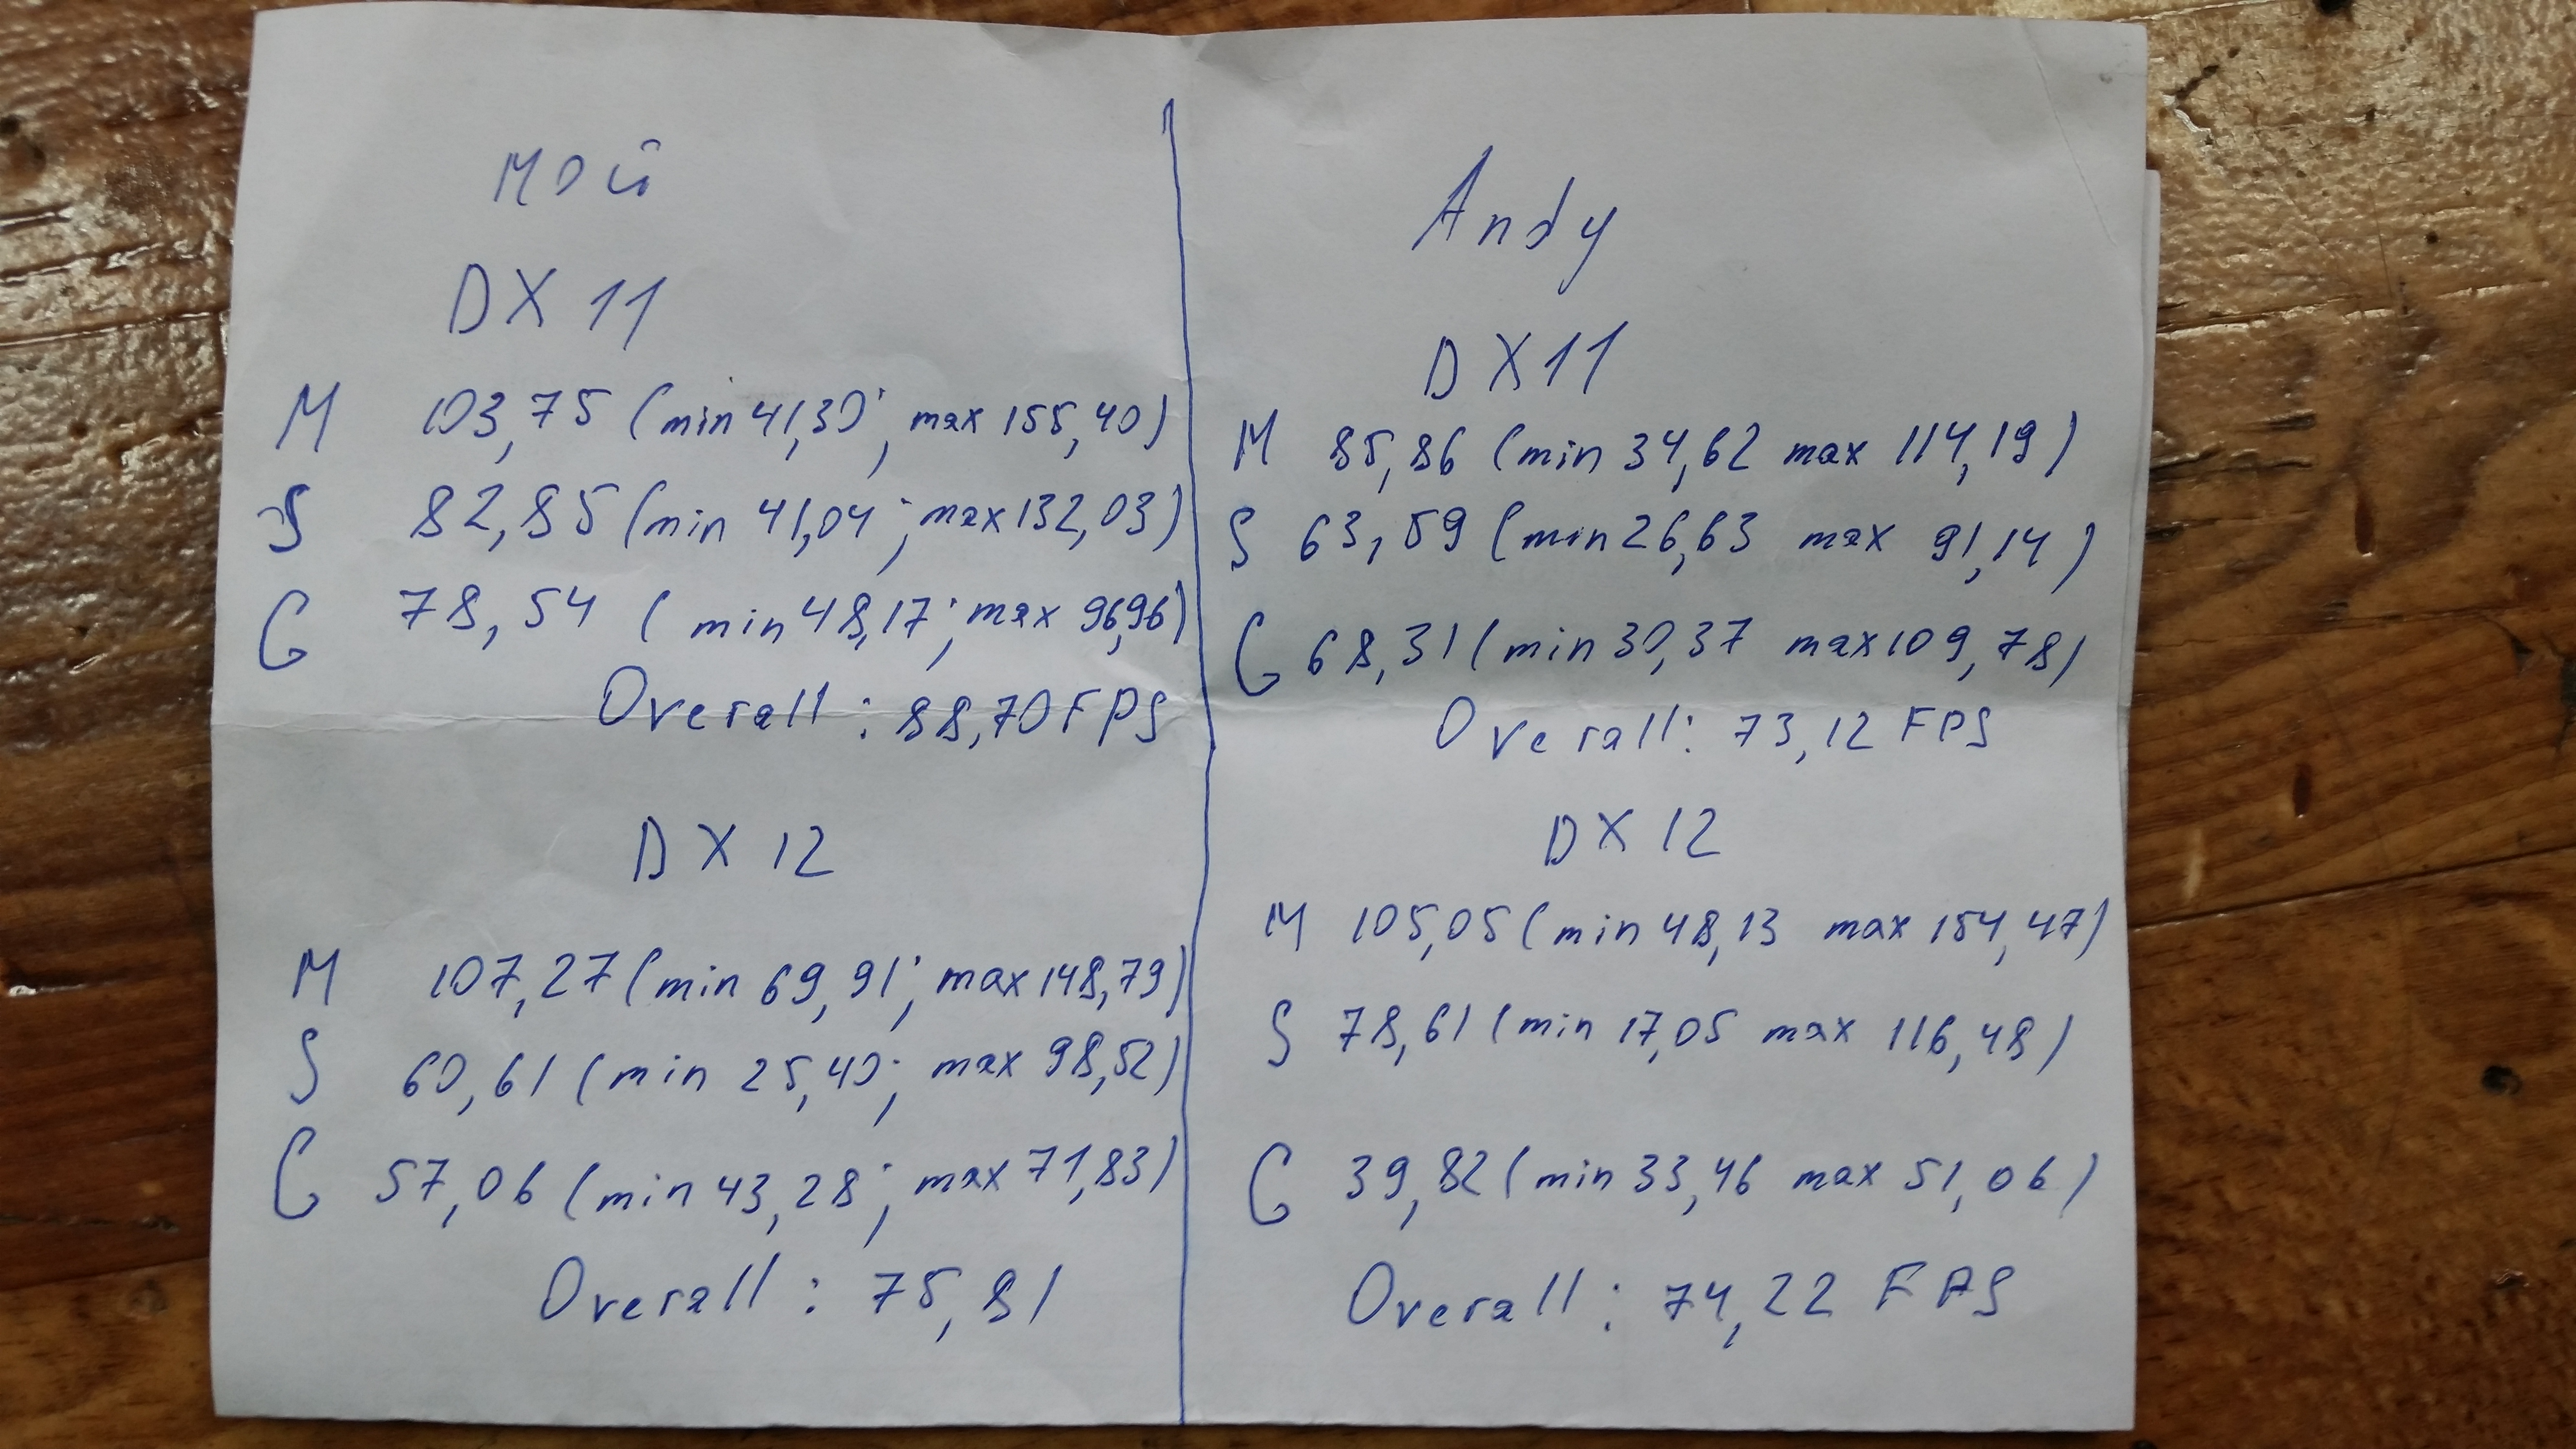 мой
DX 11
M 103,75 (min 41,30; max 155,40)
S 82,85 (min 41,04; max 132,03)
G 78,54 (min 48,17; max 96,96)
Overall: 88,70 FPS
DX 12
M 107,27 (min 69,91; max 148,79)
S 60,61 (min 25,40; max 98,52)
G 57,06 (min 43,28; max 71,83)
Overall: 75,81
Andy
DX11
M 85,86 (min 34,62 max 114,19)
S 63,59 (min 26,63 max 91,14)
G 68,31 (min 30,37 max 109,78)
Overall: 73,12 FPS
DX 12
M 105,05 (min 48,13 max 154,47)
S 78,61 (min 17,05 max 116,48)
G 39,82 (min 33,46 max 51,06)
Overall: 74,22 FPS